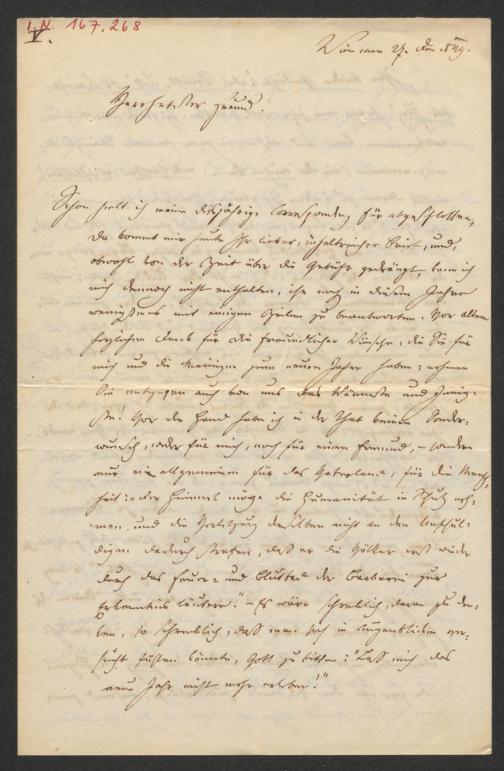 I.N. 167,268
V.
Wien am 29. Dez. 849.
Verehrtester Freund!
Schon hielt ich meine dießjährige Correspondenz für abgeschlossen,
da kommt mir heute Ihr lieber, inhaltreicher Brief, und,
obwohl von der Zeit über die Gebühr gedrängt kann ich
mich dennoch nicht enthalten, ihn noch in diesem Jahre
wenigstens mit einigen Zeilen zu beantworten. Vor allem
herzlichen Dank für die freundlichen Wünsche, die Sie für
mich und die Meinigen zum neuen Jahre haben; nehmen
Sie entgegen auch von uns das Wärmste und Innig-
ste! Vor der Hand habe ich in der That keinen Sonder-
wunsch, weder für mich, noch für einen Freund, – sondern
nur ein allgemeinen für das Vaterland, für die Mensch-
heit: „der Himmel möge die Humanität in Schutz neh-
men und die Verletzung derselben nicht an den Unschul-
digen dadurch strafen, daß er die Völker erst wieder
durch das Feuer- und Blutbad der Barbarei zur
Erkenntniß läutert." – Es wäre schrecklich, daran zu den-
ken, so schrecklich, daß man sich in Augenblicken ver-
sucht fühlen könnte, Gott zu bitten: „Laß mich das
neue Jahr nicht mehr erleben!"